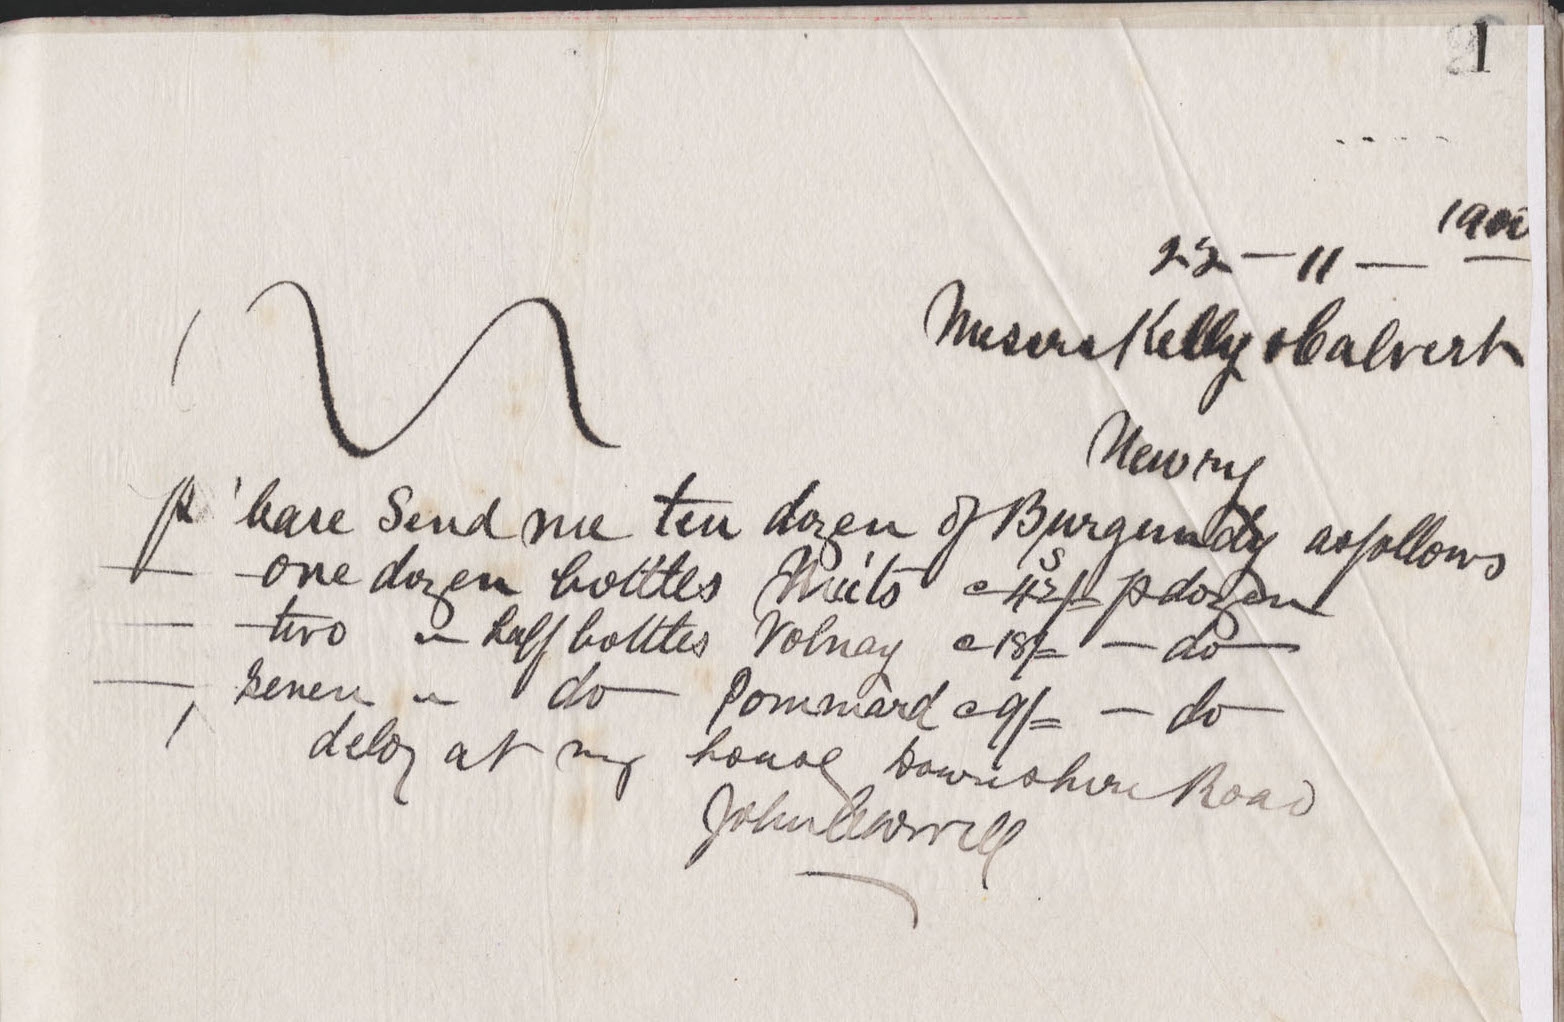 1
1900
22 - 11 -
Messrs Kelly & Calvert
Newry
Please Send me ten dozen of Burgundy as follows
- one dozen bottles Nuits @ 42s/= p dozen
- two " half bottles Volnay @ 18/= - do -
- seven " do - Pommard @ 9/= - do -
at my house Downshire Road
John